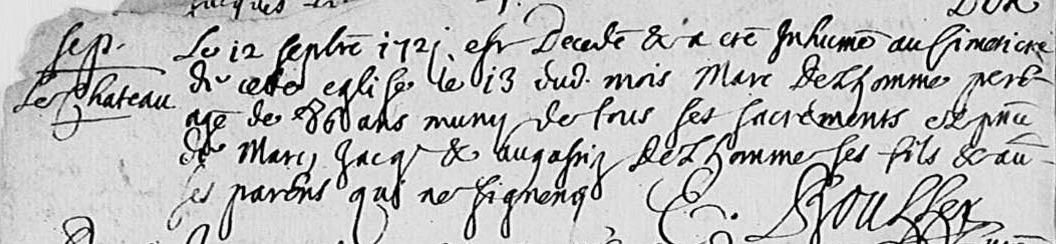 Sep.
Le Chateau
Le 12 septbre 1721 est Decedé & a eté Inhumé au Simetiere
de cette eglise le 13 dud. mois Marc Delhomme pere
agé de 86 ans muny de tous ses sacrements et pnce
de Marc, Jacq & augustin Delhomme ses fils & au
ses parens qui ne signenq
Rousset